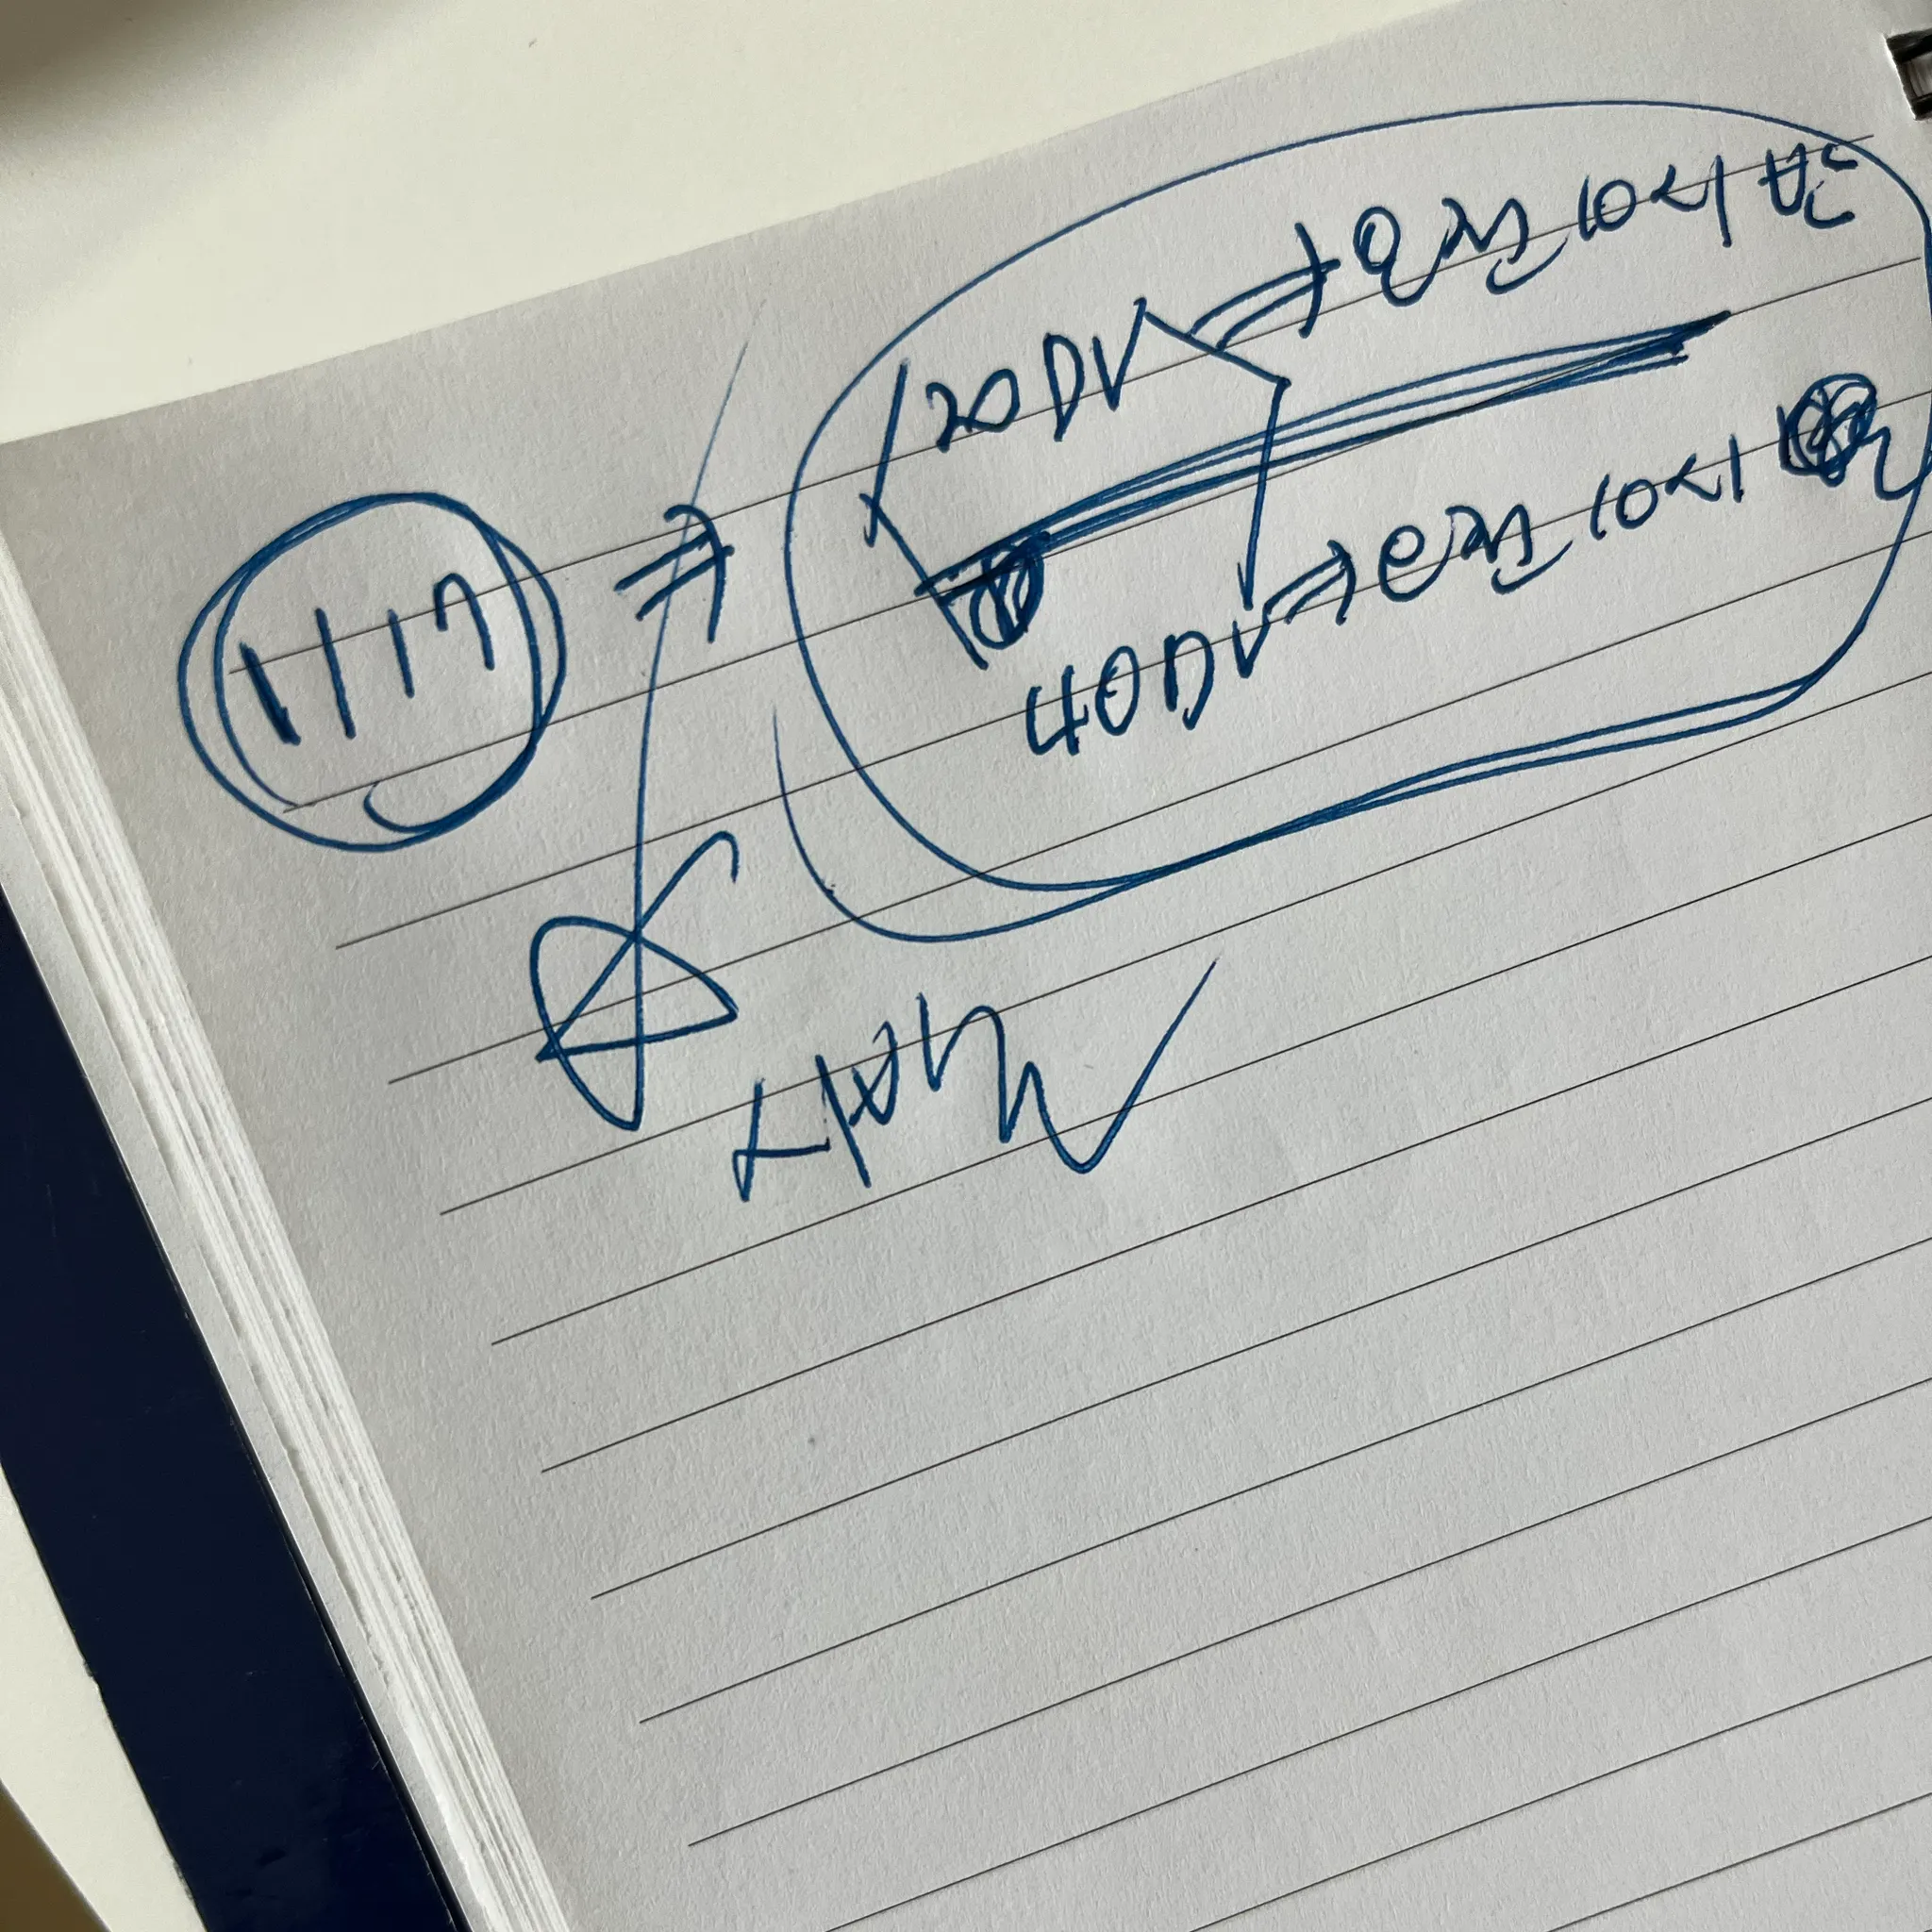 1/17 ⇒ 20DV ⇒ 오전 10시 반
40DV ⇒ 오전 10시